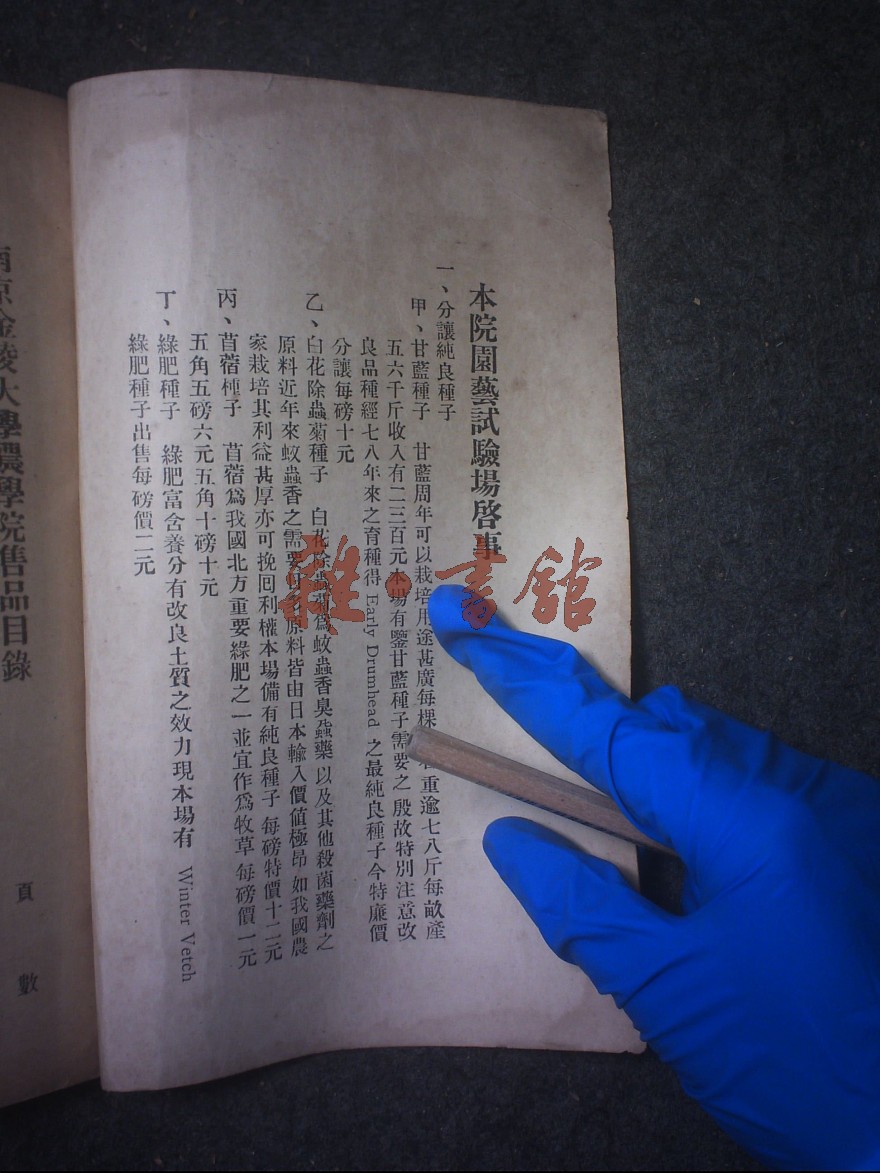 本院園藝試驗場啓事
一、分讓純良種子
甲、甘藍種子 甘藍周年可以栽培用途甚廣每棵 重逾七八斤每畝產
五六千斤收入有二三百元本場有鑒甘藍種子需要之殷故特別注意改
良品種經七八年來之育種得 Early Drumhead 之最純良種子今特廉價
分讓每磅十元
乙、白花除蟲菊種子 白花除蟲菊爲蚊蟲香臭蟲藥以及其他殺菌藥劑之
原料近年來蚊蟲香之需要日多原料皆由日本輸入價値極昂如我國農
家栽培其利益甚厚亦可挽囘利權本場備有純良種子每磅特價十二元
丙、苜蓿種子 苜蓿爲我國北方重要綠肥之一並宜作爲牧草每磅價一元
五角五磅六元五角十磅十元
丁、綠肥種子 綠肥富含養分有改良土質之效力現本場有 Winter Vetch
綠肥種子出售每磅價二元
南京金陵大學農學院售品目錄
頁 數
雜·書館